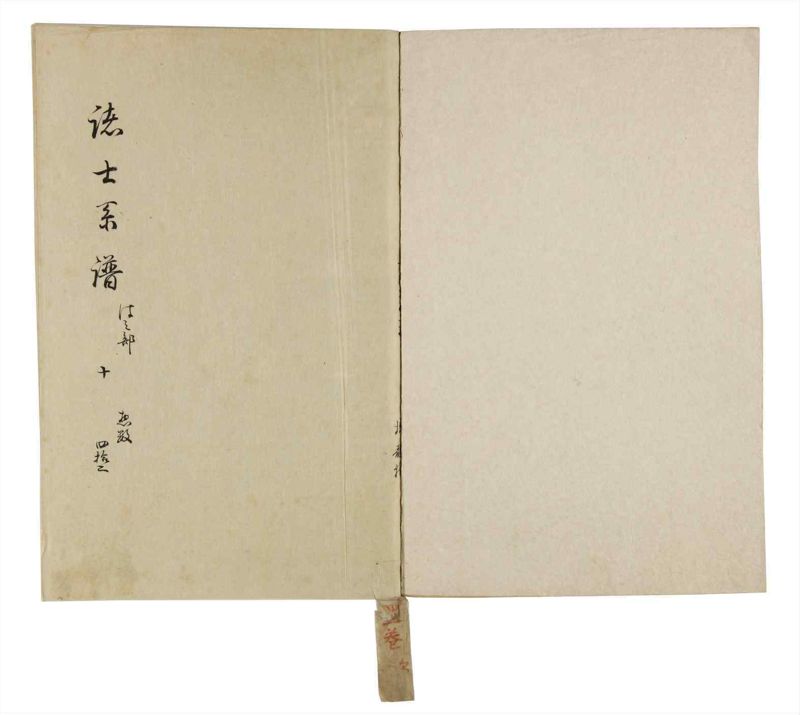 諸士系譜
ほ之部
十
惣数
四拾二
巻